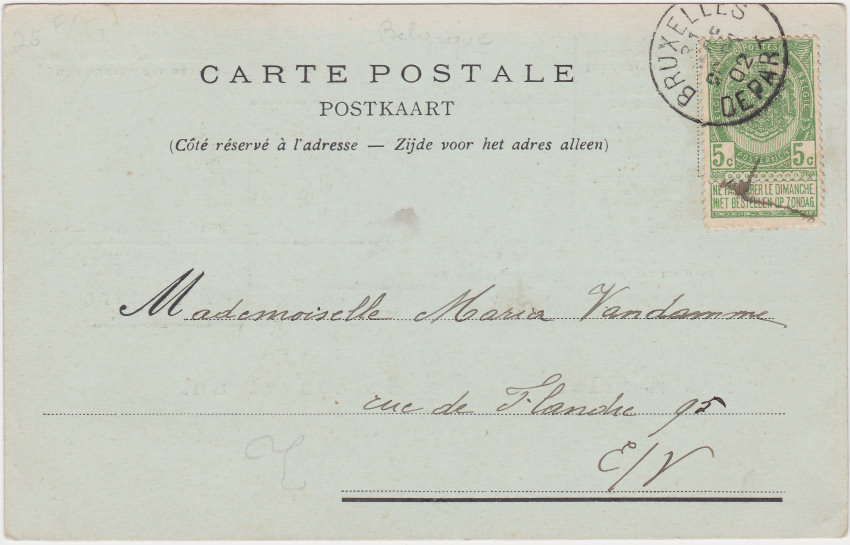 25
Belgique
CARTE POSTALE
POSTKAART
(Côté réservé à l'adresse — Zijde voor het adres alleen)
BRUXELLES
02
DEPART
POSTES
BELGIQUE
5c 5c
POSTERIJEN
NE PAS LIVRER LE DIMANCHE.
NIET BESTELLEN OP ZONDAG.
Mademoiselle Maria Vandamme
rue de Flandre 95
E/V